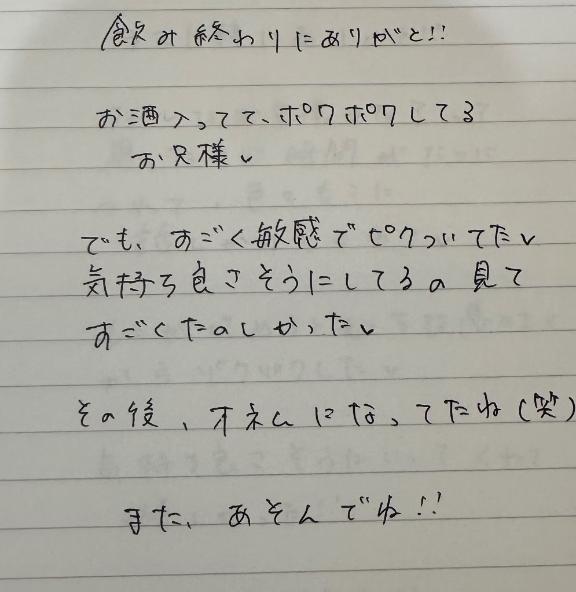 飲み終わりにありがと!!
お酒入ってて、ポワポワしてる
お兄様✓
でも、すごく敏感でピクついてた✓
気持ち良さそうにしてるの見て
すごくたのしかった✓
その後、オネムになってたね(笑)
また、あそんでね!!